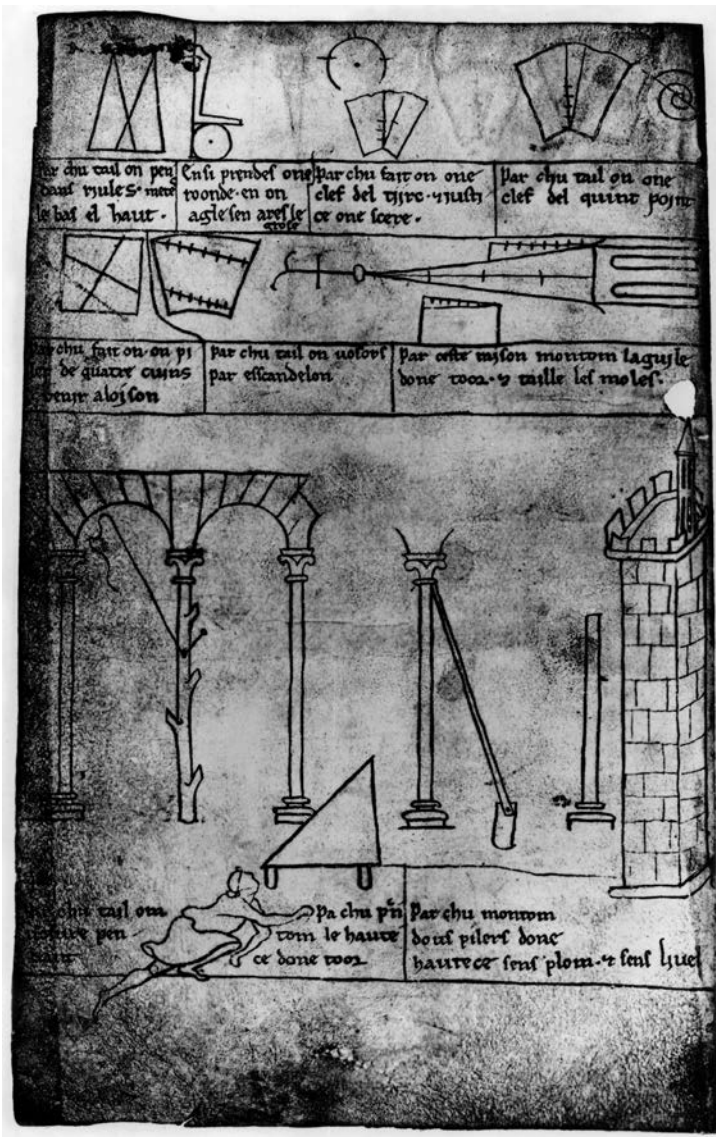 par chu tail on pen
dans riules. mete
le bas el haut.
Ensi prendes one
roonde. en on
agle sen ares le
grose
par chu fait on one
clef del tirc. ⁊ iusti
ce one scere.
par chu tail on one
clef del quint point
par chu fait on. on pi
ler de quatre cuins
venir aloison
par chu tail on vosors
par esscandelon
par ceste raison montom laguile
done toor. ⁊ taille les moles.
chu tail om
vosure pen
dant
pa chu prn
tom le haute
ce done toor
par chu montom
dous pilers done
hautece sens plom. ⁊ sens livel